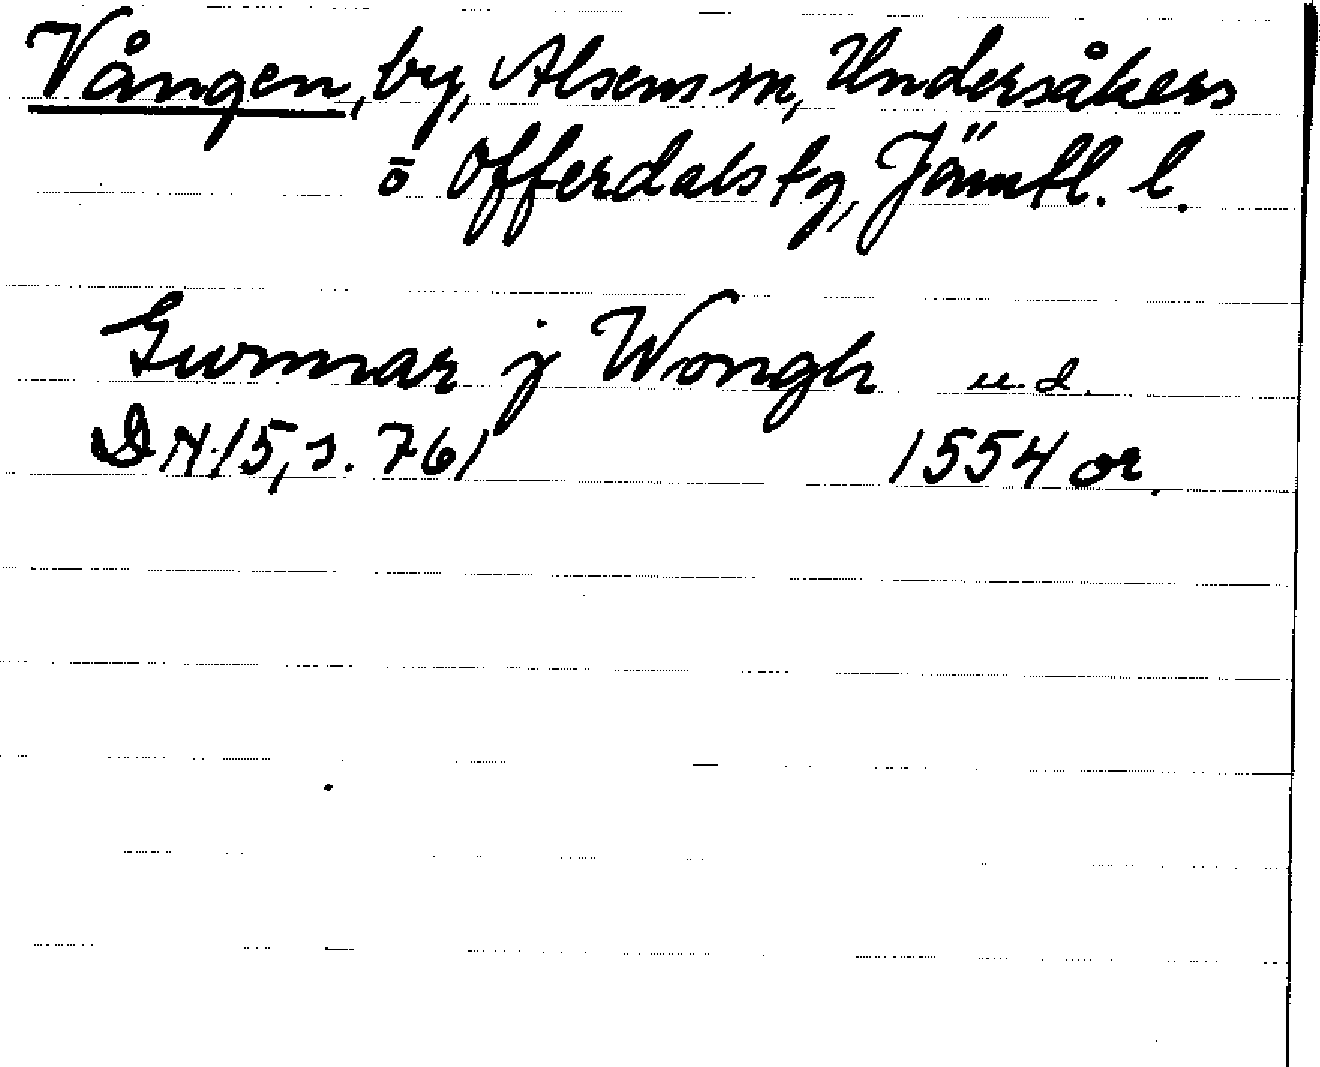 Vången, by, Alsens sn, Undersåkers
o Offerdals tg, Jämtl. l.
Gunnar j Wongh u.d.
DN 15, s. 761 1554 or.